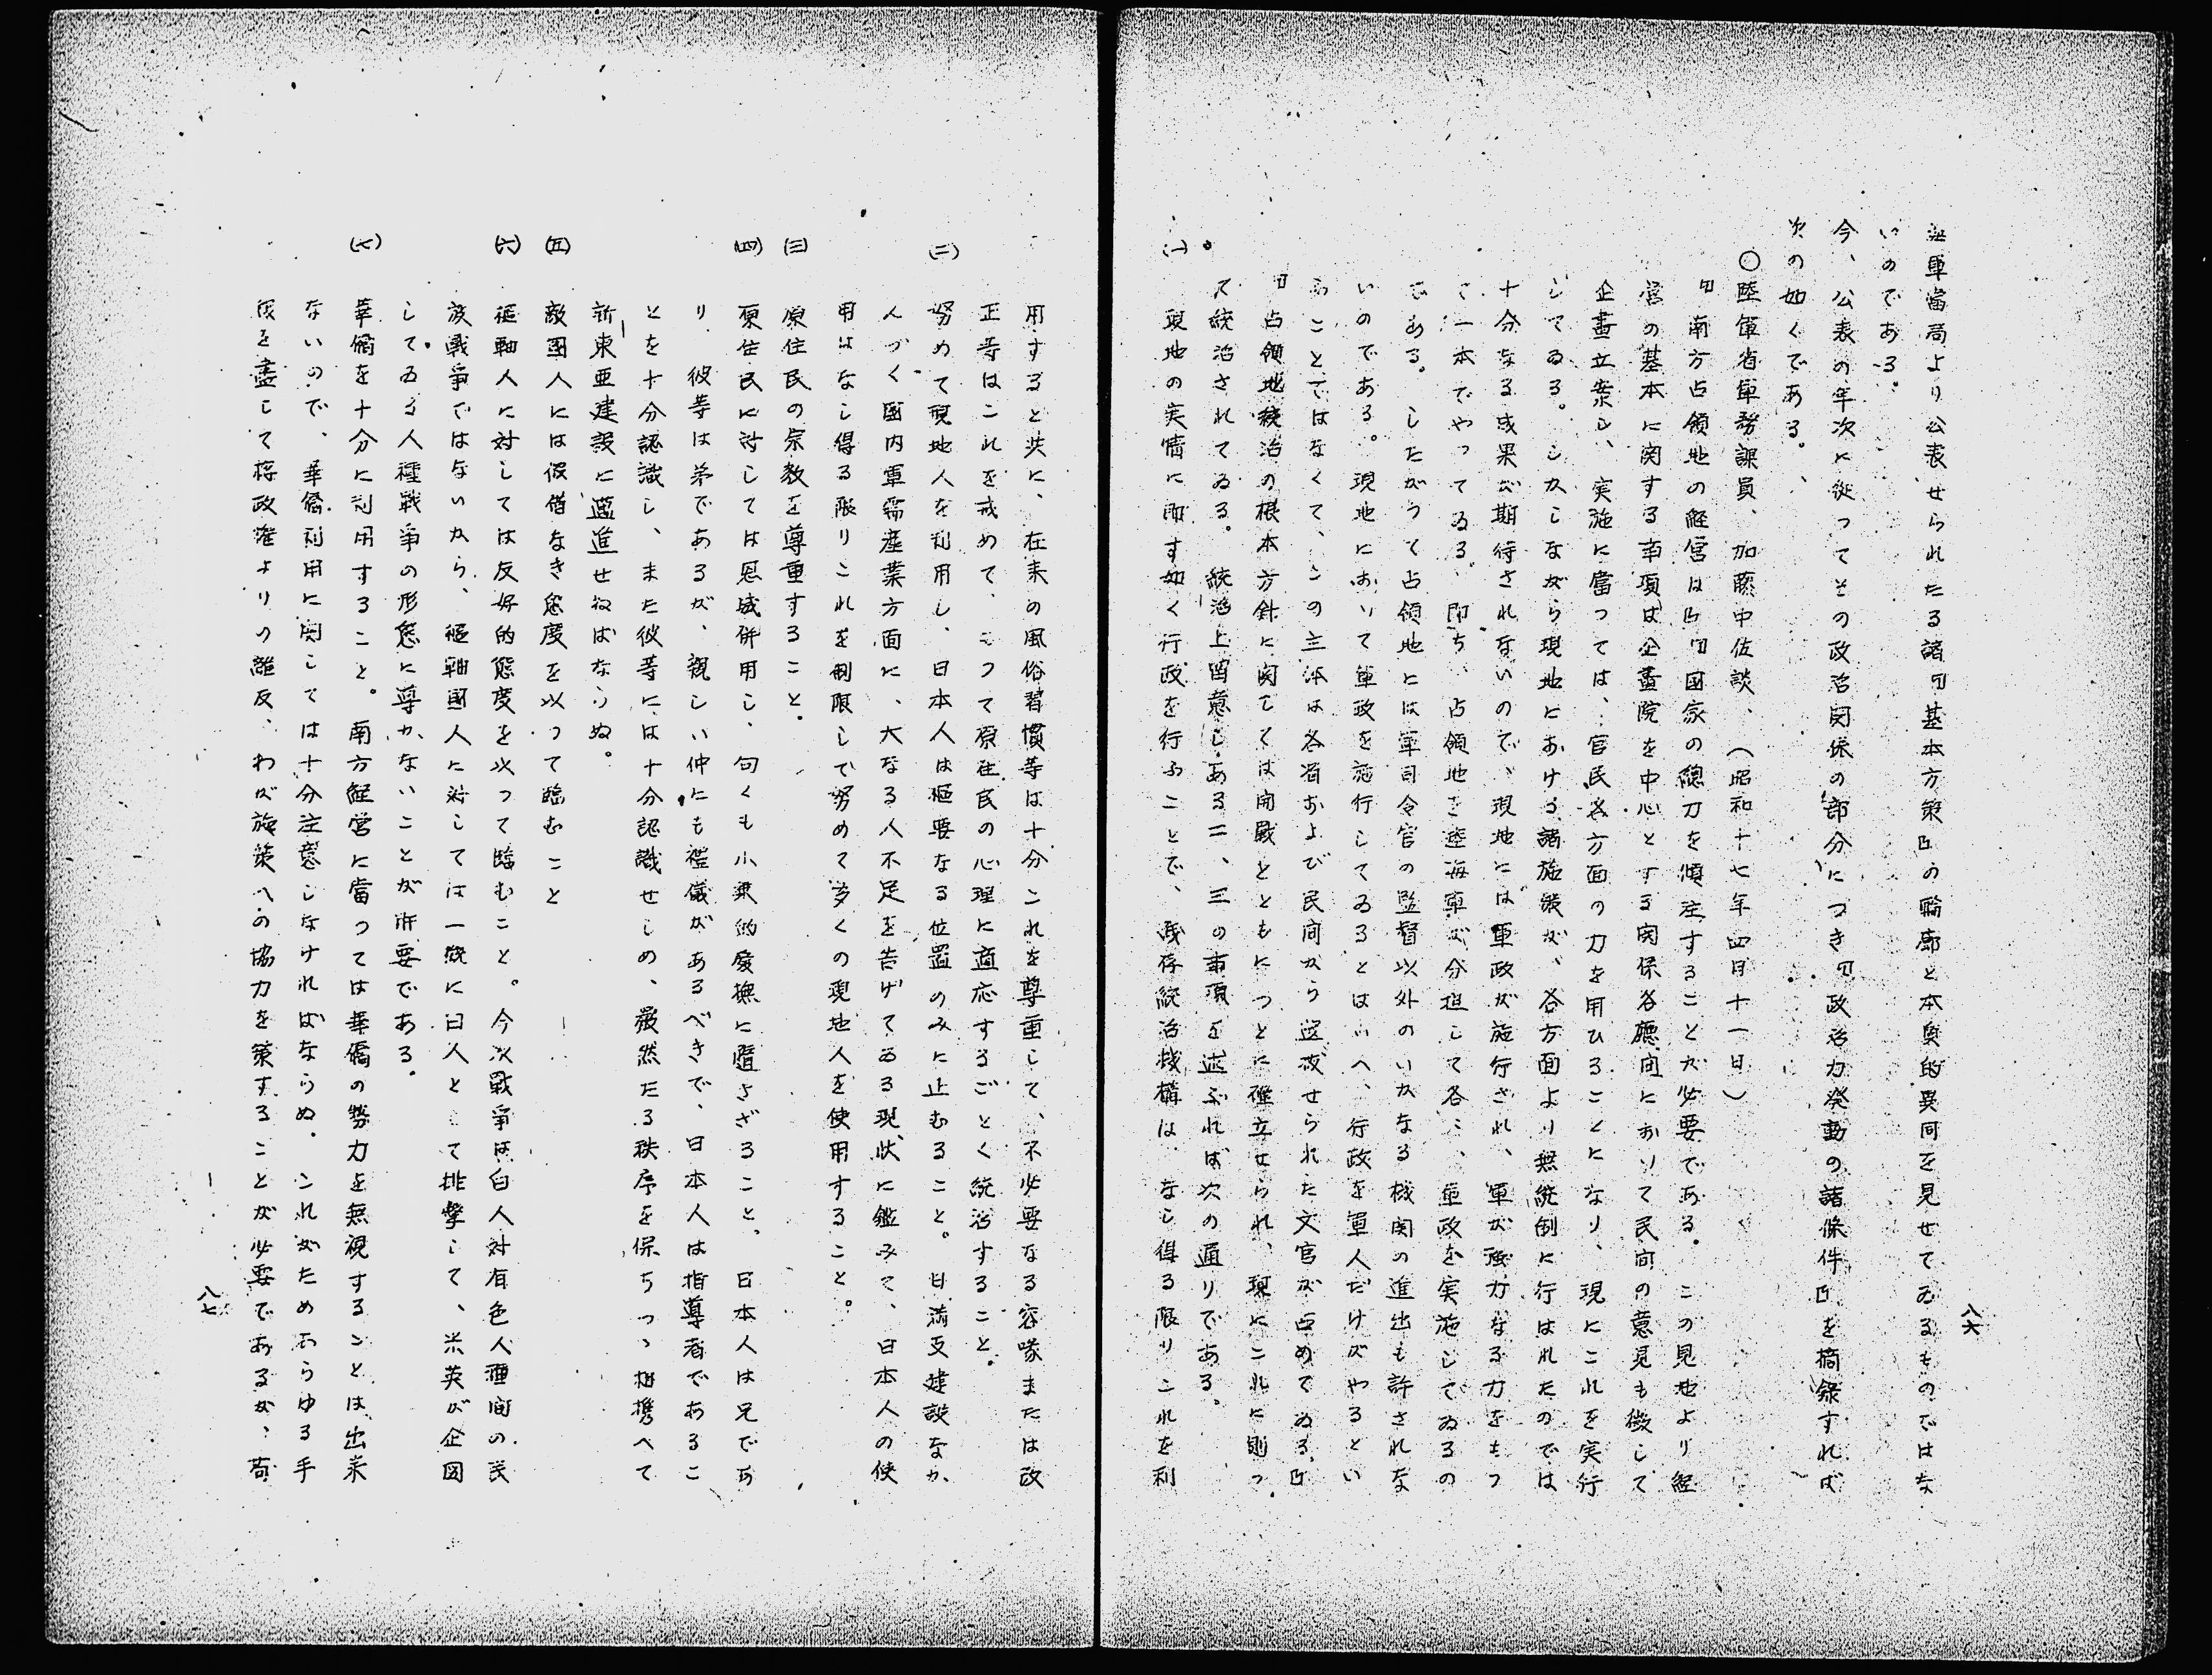 八六
軍當局より公表せられたる諸『基本方策』の輪廓と本質的異同を見せてゐるものではな
いのである。
今、公表の年次に従ってその政治関係の部分につき『政治力発動の諸條件』を摘録すれば
次の如くである。
〇陸軍省軍務課員、加藤中佐談、（昭和十七年四月十一日）
『南方占領地の経営は』『国家の總力を傾注することが必要である。この見地より経
営の基本に関する事項は企畫院を中心とする関係各廳間において民間の意見も徴して
企畫立案し、実施に當つては、官民各方面の力を用ひることになり、現にこれを実行
してゐる。しかしながら現地における諸施策が、各方面より無統制に行はれたのでは
十分なる成果が期待されないので、現地には軍政が施行され、軍が強力なる力をもつ
て一本でやってゐる、即ち、占領地を陸海軍が分担して各〻、軍政を実施してゐるの
である。したがつて占領地には軍司令官の監督以外のいかなる機関の進出も許されな
いのである。現地において軍政を施行してゐるとはいへ、行政を軍人だけがやるとい
ふことではなくて、この主体は各省および民間から選抜せられた文官が占めてゐる』
『占領地統治の根本方針に関しては開戦とともにつとに確立せられ、現にこれに則つ
て統治されてゐる。統治上留意しある二、三の事項を述ぶれば次の通りである。
(一) 現地の実情に即す如く行政を行ふことで、残存統治機構は、なし得る限りこれを利
用すると共に、在来の風俗習慣等は十分これを尊重して、不必要なる容喙または改
正等はこれを戒めて、もつて原住民の心理に適応するごとく統治すること。
(二) 努めて現地人を利用し、日本人は枢要なる位置のみに止むること。日満支建設なか
んづく国内軍需産業方面に、大なる人不足を告げてゐる現状に鑑みて、日本人の使
用はなし得る限りこれを制限して努めて多くの現地人を使用すること。
(三) 原住民の宗教を尊重すること。
(四) 原住民に対しては恩威併用し、句くも小乗的愛撫に堕さざること、日本人は兄であ
り、彼等は弟であるが、親しい仲にも禮儀があるべきで、日本人は指導者であるこ
とを十分認識し、また彼等には十分認識せしめ、厳然たる秩序を保ちつゝ相携へて
新東亜建設に邁進せねばならぬ。
(五) 敵国人には仮借なき態度を以って臨むこと
(六) 枢軸人に対しては友好的態度を以って臨むこと。今次戦争は白人対有色人種間の民
族戦争ではないから、枢軸国人に対しては一概に白人として排撃して、米英が企図
してゐる人種戦争の形態に導かないことが肝要である。
(七) 華僑を十分に利用すること。南方経営に當つては華僑の勢力を無視することは出来
ないので、華僑利用に関しては十分注意しなければならぬ。これがためあらゆる手
段を盡して蒋政権よりの離反、わが施策への協力を策することが必要であるが、苟
八七